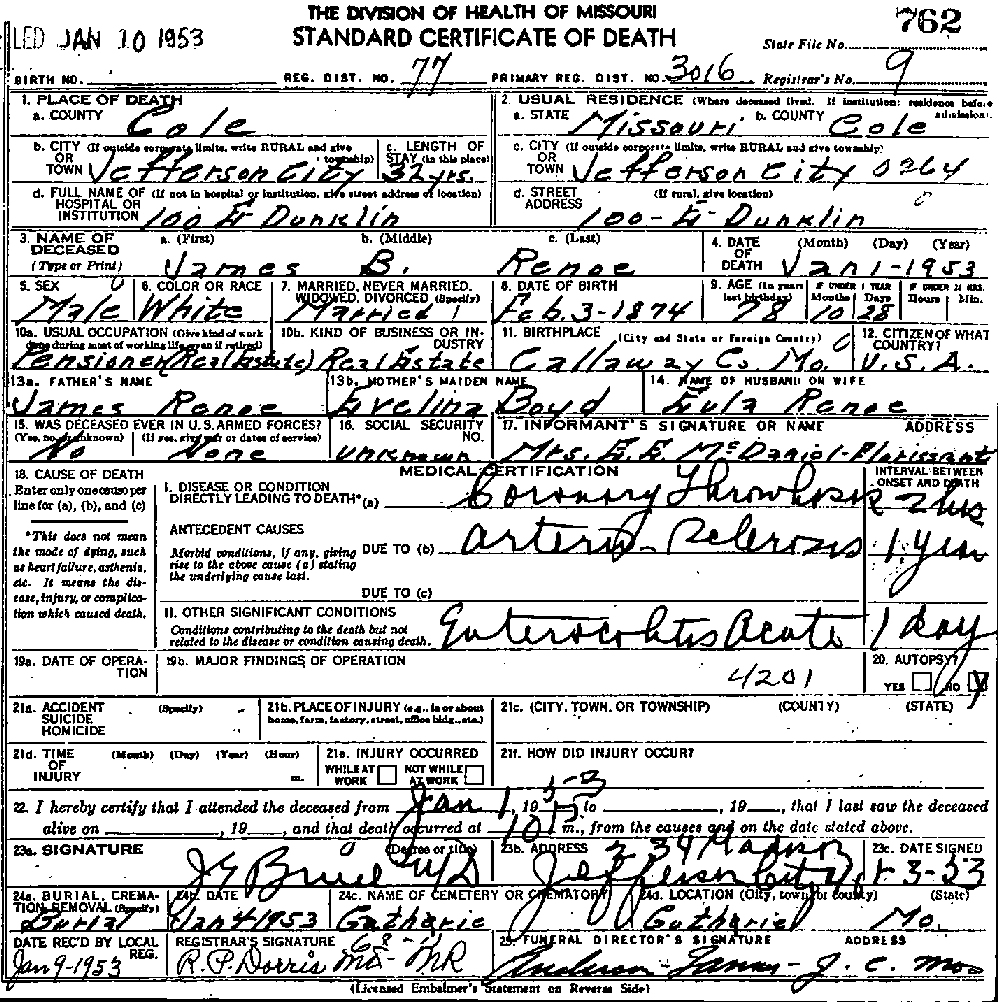 THE DIVISION OF HEALTH OF MISSOURI
STANDARD CERTIFICATE OF DEATH
762
LED JAN 10 1953
State File No.
BIRTH NO. REG. DIST. NO. 77 PRIMARY REG. DIST. NO. 3016 Registrar's No. 9
1. PLACE OF DEATH
a. COUNTY Cole
2. USUAL RESIDENCE (Where deceased lived. If institution: residence before admission)
a. STATE Missouri b. COUNTY Cole
b. CITY (If outside corporate limits, write RURAL and give township)
OR
TOWN Jefferson City
c. LENGTH OF STAY (in this place) 32 yrs.
c. CITY (If outside corporate limits, write RURAL and give township)
OR
TOWN Jefferson City 0264
d. FULL NAME OF (If not in hospital or institution, give street address or location)
HOSPITAL OR
INSTITUTION 100 E Dunklin
d. STREET (If rural, give location)
ADDRESS 100-E-Dunklin
3. NAME OF DECEASED a. (First) b. (Middle) c. (Last)
(Type or Print) James B. Renoe
4. DATE OF DEATH (Month) (Day) (Year)
Jan 1-1953
5. SEX
Male
6. COLOR OR RACE
White
7. MARRIED, NEVER MARRIED, WIDOWED, DIVORCED (Specify)
Married
8. DATE OF BIRTH
Feb. 3-1874
9. AGE (In years last birthday) IF UNDER 1 YEAR Months Days IF UNDER 24 HRS. Hours Min.
78 10 28
10a. USUAL OCCUPATION (Give kind of work done during most of working life, even if retired)
Pensioner (Real Estate)
10b. KIND OF BUSINESS OR INDUSTRY
Real Estate
11. BIRTHPLACE (City and State or Foreign Country)
Callaway Co Mo.
12. CITIZEN OF WHAT COUNTRY?
U.S.A.
13a. FATHER'S NAME
James Renoe
13b. MOTHER'S MAIDEN NAME
Evelina Boyd
14. NAME OF HUSBAND OR WIFE
Eula Renoe
15. WAS DECEASED EVER IN U.S. ARMED FORCES?
(Yes, no, or unknown) (If yes, give war or dates of service)
No None
16. SOCIAL SECURITY NO.
Unknown
17. INFORMANT'S SIGNATURE OR NAME ADDRESS
Mrs. E. E. McDaniel-Florissant
18. CAUSE OF DEATH
Enter only one cause per line for (a), (b), and (c)
*This does not mean the mode of dying, such as heart failure, asthenia, etc. It means the disease, injury, or complication which caused death.
MEDICAL CERTIFICATION
INTERVAL BETWEEN ONSET AND DEATH
I. DISEASE OR CONDITION
DIRECTLY LEADING TO DEATH* (a) Coronary Thrombosis 2 hrs
ANTECEDENT CAUSES
Morbid conditions, if any, giving rise to the above cause (a) stating the underlying cause last.
DUE TO (b) Arterio Sclerosis 1 year
DUE TO (c)
II. OTHER SIGNIFICANT CONDITIONS
Conditions contributing to the death but not related to the disease or condition causing death.
Enterocolitis Acute 1 day
19a. DATE OF OPERATION
19b. MAJOR FINDINGS OF OPERATION
4201
20. AUTOPSY?
YES NO
21a. ACCIDENT SUICIDE HOMICIDE (Specify)
21b. PLACE OF INJURY (e.g., in or about home, farm, factory, street, office bldg., etc.)
21c. (CITY, TOWN, OR TOWNSHIP) (COUNTY) (STATE)
21d. TIME OF INJURY (Month) (Day) (Year) (Hour) m.
21e. INJURY OCCURRED
WHILE AT WORK NOT WHILE AT WORK
21f. HOW DID INJURY OCCUR?
22. I hereby certify that I attended the deceased from Jan 1, 1953 to , 19 , that I last saw the deceased
alive on , 19 , and that death occurred at m., from the causes and on the date stated above.
23a. SIGNATURE (Degree or title)
J G Bruce MD
23b. ADDRESS
234 Madison
Jefferson City
23c. DATE SIGNED
1-3-53
24a. BURIAL, CREMATION, REMOVAL (Specify)
Burial
24b. DATE
Jan 4 1953
24c. NAME OF CEMETERY OR CREMATORY
Gutharie
24d. LOCATION (City, town, or county) (State)
Gutharie Mo.
DATE REC'D BY LOCAL REG.
Jan 9-1953
REGISTRAR'S SIGNATURE
R. P. Dorris MD-MR
25. FUNERAL DIRECTOR'S SIGNATURE ADDRESS
J. C. Mo
(Licensed Embalmer's Statement on Reverse Side)